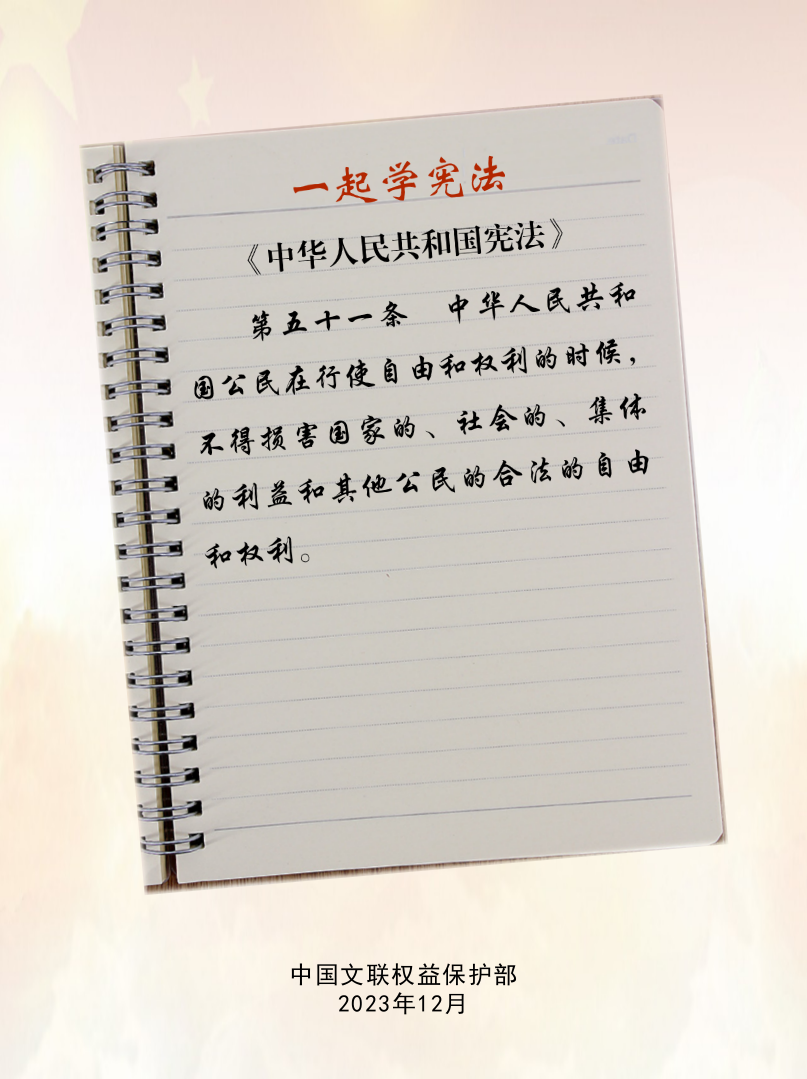 一起学宪法
《中华人民共和国宪法》
第五十一条　中华人民共和
国公民在行使自由和权利的时候，
不得损害国家的、社会的、集体
的利益和其他公民的合法的自由
和权利。
中国文联权益保护部
2023年12月